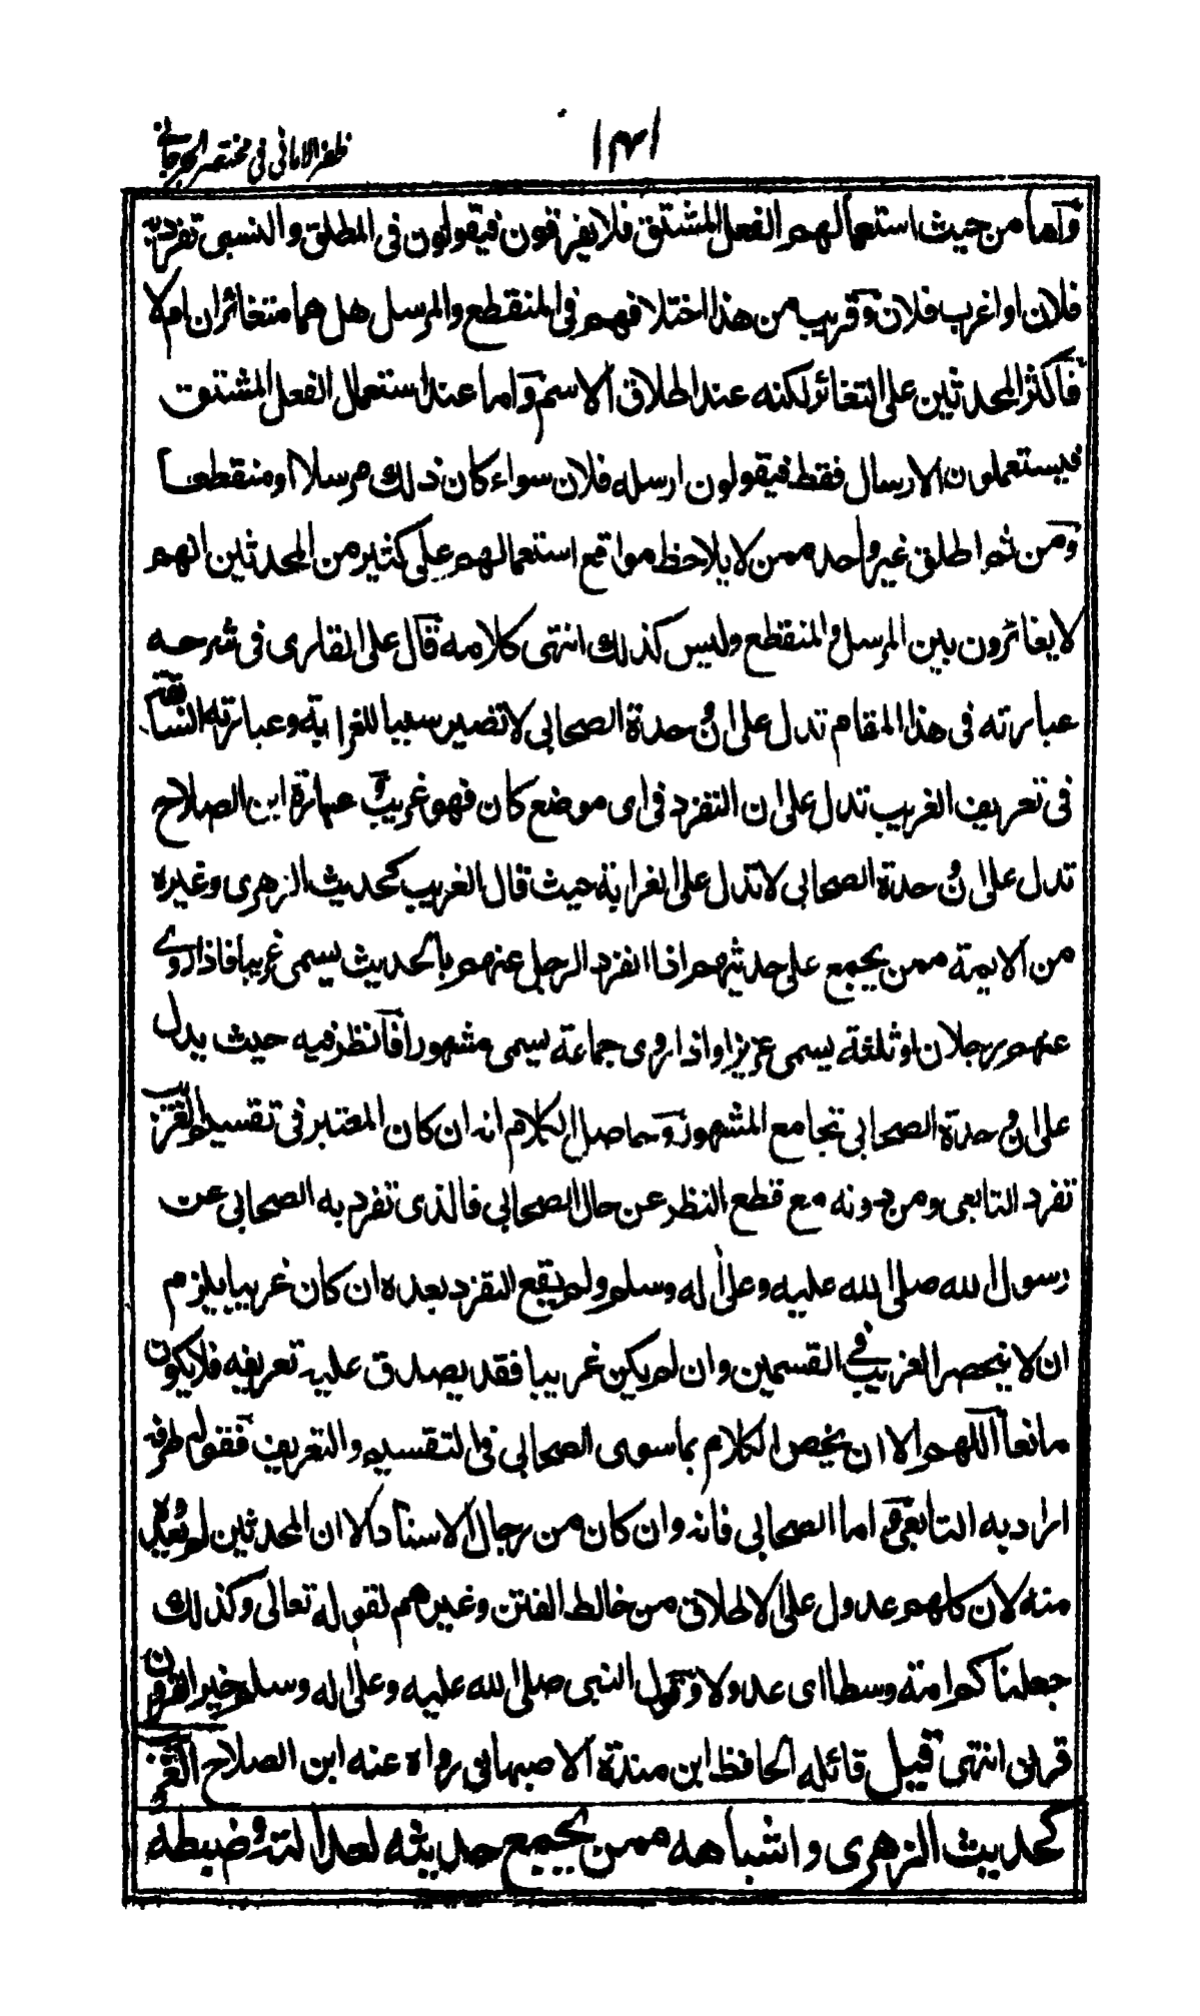 ظفر الامانی فی مختصر الجرجانی
۱۴۱
وآما من حیث استعمالهم الفعل المشتق فلا یفرقون فیقولون فی المطلق والنسبی تفرد به
فلان او اغرب فلان وقریب من هذا اختلافهم فی المنقطع والمرسل هل هما متغائران ام لا
فاکثر المحدثین علی التغائر لکنه عند اطلاق الاسم وآما عند استعمال الفعل المشتق
فیستعملون الارسال فقط فیقولون ارسله فلان سواء کان ذلك مرسلا او منقطعا
ومن ثم اطلق غیر واحد ممن لا یلاحظ مواقع استعمالهم علی کثیر من المحدثین انهم
لا یغائرون بین المرسل والمنقطع ولیس کذلك انتهی کلامه قال علی القاری فی شرحه
عبارته فی هذا المقام تدل علی ان وحدة الصحابی لا تصیر سببا للغرابة وعبارته السابقة
فی تعریف الغریب تدل علی ان التفرد فی ای موضع کان فهو غریب وعبارة ابن الصلاح
تدل علی ان وحدة الصحابی لا تدل علی الغرابة حیث قال الغریب کحدیث الزهری وغیره
من الایمة ممن یجمع علی حدیثهم اذا انفرد الرجل عنهم بالحدیث یسمی غریبا فاذا روے
عنهم رجلان او ثلثة یسمی عزیزا واذا روی جماعة یسمی مشهورا فآنظر فیه حیث یدل
علی ان وحدة الصحابی تجامع المشهور وحاصل الکلام انه ان کان المعتبر فی تقسیم الغریب
تفرد التابعی ومن دونه مع قطع النظر عن حال الصحابی فالذی تفرد به الصحابی عن
رسول الله صلی الله علیه وعلی اله وسلم ولم یقع التفرد بعده ان کان غریبا یلزم
ان لا ینحصر الغریب فی القسمین وان لم یکن غریبا فقد یصدق علیه تعریفه فلا یکون
مانعا اللهم الا ان یخص الکلام بما سوی الصحابی فی التقسیم والتعریف فقوله طرفه
اراد به التابعی اما الصحابی فانه وان کان من رجال الاسناد الا ان المحدثین لم یعدوه
منه لان کلهم عدول علی الاطلاق من خالط الفتن وغیرهم لقوله تعالی وکذلك
جعلناکم امة وسطا ای عدولا وقول النبی صلی الله علیه وعلی اله وسلم خیر القرون
قرنی انتهی قیل قائله الحافظ ابن مندة الاصبهانی رواه عنه ابن الصلاح
کحدیث الزهری واشباهه ممن یجمع حدیثه لعدالته وضبطه